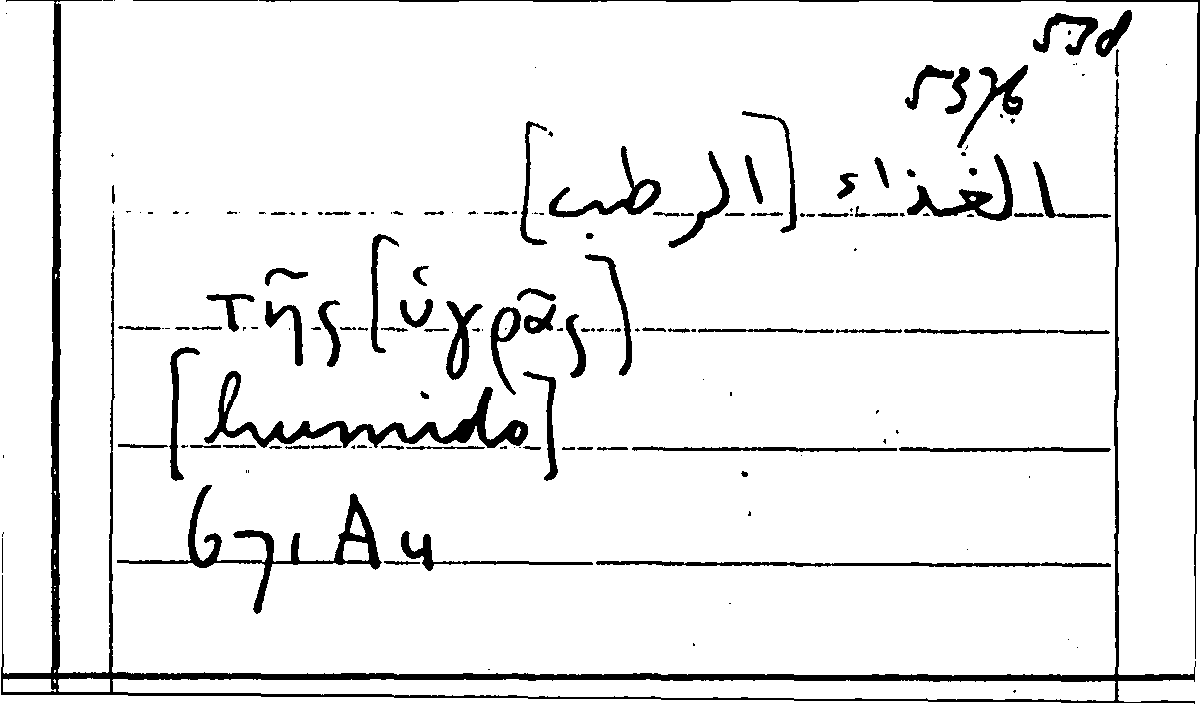 الغذاء [الرطب]
τῆς [ὑγρᾶς]
[humido]
671 A4